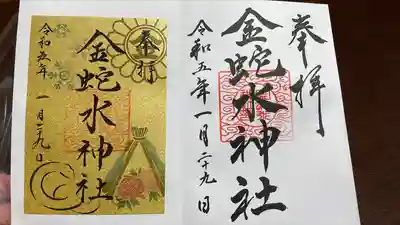 奉拝
金蛇水神社
令和五年 一月二十九日
奉拝
金蛇水神社
令和五年一月二十九日